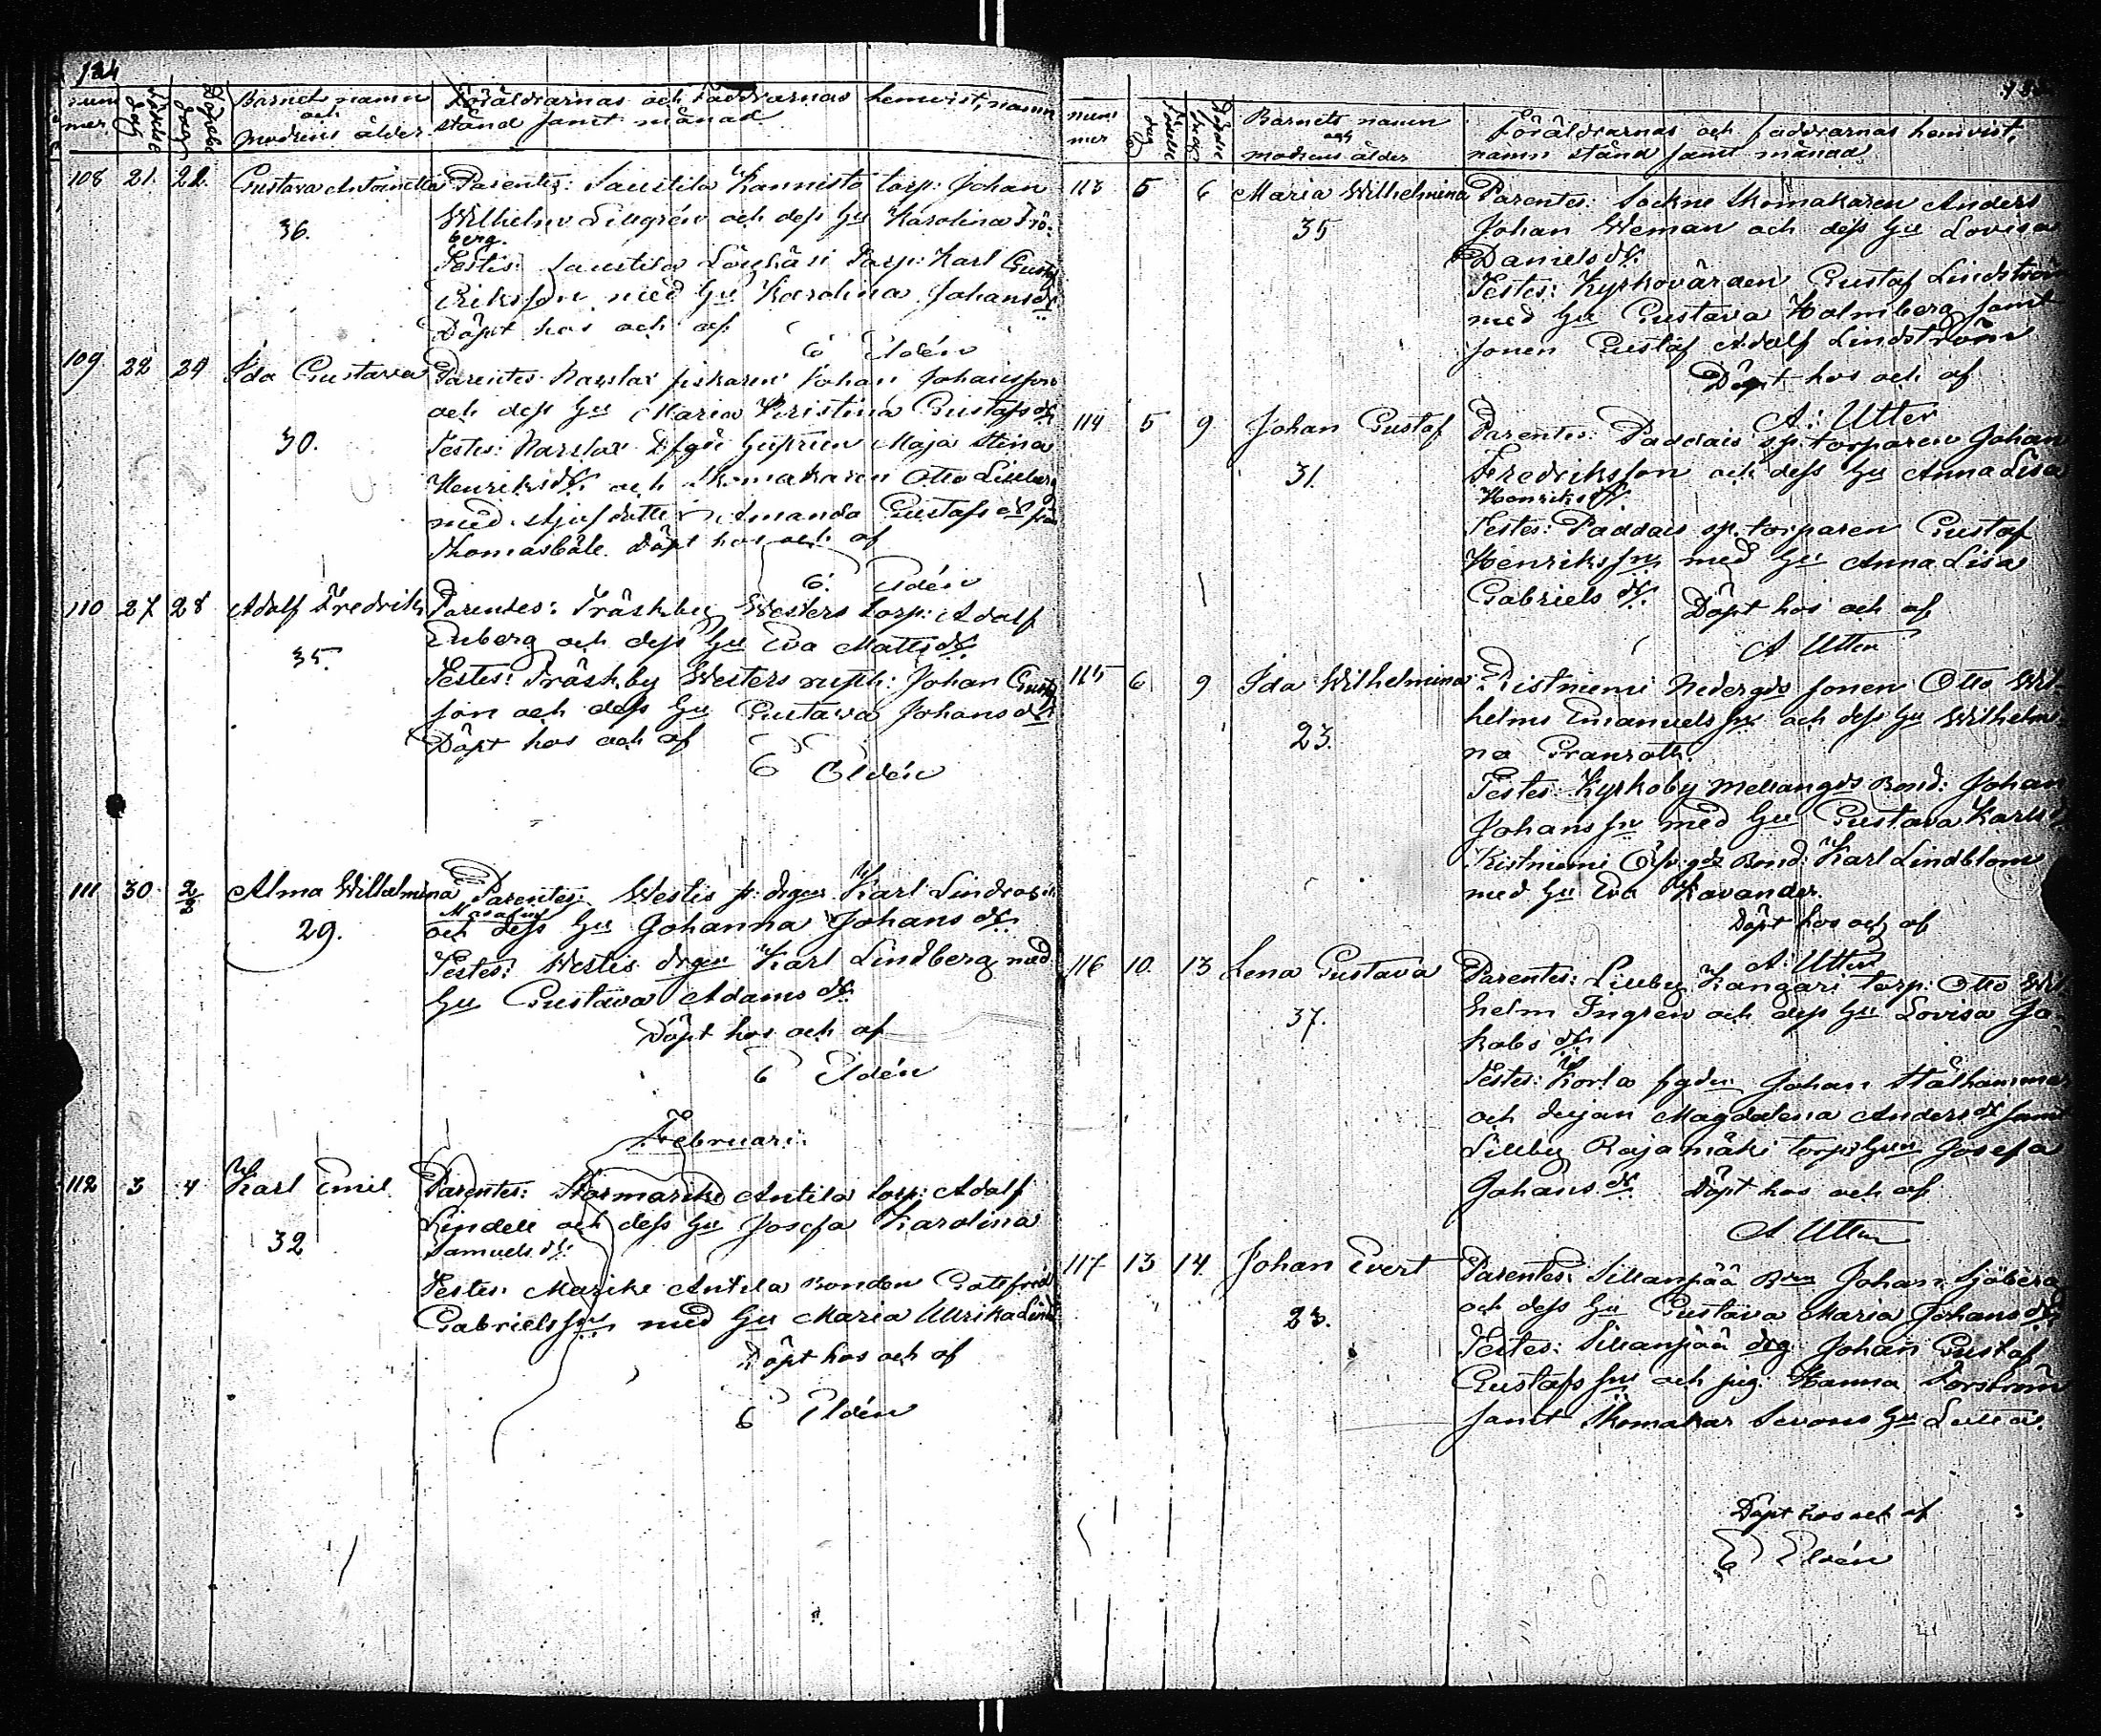 124
num mer
Födelse dag
Döpelse dag
Barnets namn och Modrens ålder
Föräldrarnas och Faddrarnas hemvist, namn
stånd samt månad.
108 21. 22. Gustava Antoinetta
36.
Parentes: Saustila Kannisto torp: Johan
Wilhelm Lillgrén och dess hu Karolina Frö-
berg.
Testis: Saustila Torp: Karl Gust
Eriksson med hu Karolina Johansdr
Döpt hos och af
E Eldén
109 22 24 Ida Gustava
30.
Parentes fiskaren Johan Johansson
och dess hu Maria Kristina Gustafsdr
Testes: hustrun Maja Stina
Henriksdr. och skomakaren Otto Lillberg
med Amanda Gustafsdr från
Thomasböle. Döpt hos och af
E. Eldén
110 27 28 Adolf Fredrik
35.
Parentes: Träskby Westers torp: Adolf
Enberg och dess hu Eva Mattsdr.
Testes: Träskby Westers Johan Gust
son och dess hu Gustava Johansdr
Döpt hos och af
E Eldén
111 30 2/2 Alma Wilhelmina
29.
Parentes: Westis Karl Lindros
och dess hu Johanna Johansdr.
Testes: Westis Karl Lindberg med
hu Gustava Adamsdr
Döpt hos och af
E Eldén
Februari.
112 3 4 Karl Emil
32
Parentes: Antila torp: Adolf
Lindell och dess hu Josefa Karolina
Samuelsdr.
Testes: Marike Antila Bonden Gottfried
Gabrielsson med hu Maria Ulrika Lind
Döpt hos och af
E Eldén
num mer
Födelse dag
Döpelse dag
Barnets namn och modrens ålder
Föräldrarnas och faddrarnas hemvist,
namn stånd samt månad
113 5 6 Maria Wilhelmina
35
Parentes: Sockne Skomakaren Anders
Johan Weman och dess hu Lovisa
Danielsdr.
Testes: Kyrkovärden Gustaf Lindström
med hu Gustava Holmberg samt
sonen Gustaf Adolf Lindström
Döpt hos och af
A: Utter
114 5 9 Johan Gustaf
31.
Parentes: Paddais sp. torparen Johan
Fredriksson och dess hu Anna Lisa
Henriksdr.
Testes: Paddais sp. torparen Gustaf
Henriksson med hu Anna Lisa
Gabrielsdr. Döpt hos och af
A Utter
115 6 9 Ida Wilhelmina
23.
Ristniemi Nedergds sonen Otto Wil-
helm Emanuelsson och dess hu Wilhelmi-
na Granroth.
Testes: Kyrkoby Mellangds Bond: Johan
Johansson med hu Gustava Karlsdr
Ristniemi Öfvergds Bond: Karl Lindblom
med hu Eva Kavander.
Döpt hos och af
A: Utter
116 10. 13 Lena Gustava
37.
Parentes: Lillby Kangari torp: Otto Wil
helm Ingren och dess hu Lovisa Ja-
kobsdr
Testes: Korla Johan Stålhammar
och Magdalena Andersdr samt
Lillby Rajamäki torp Josefa
Johansdr. Döpt hos och af
A Utter
117 13 14. Johan Evert
23.
Parentes: Sillanpää Johan Sjöberg
och dess hu Gustava Maria Johansdr
Testes: Sillanpää drg Johan Gustaf
Gustafsson och pig: Hanna Forström
samt Skomakar hu
Döpt hos och af
E Eldén